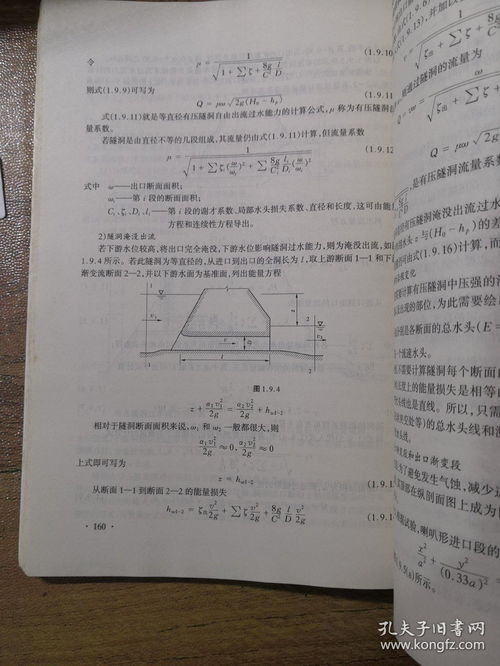 令
μ = 1 / √(1 + ∑ζ + (8g/C²)(l/D)) (1.9.10
则式(1.9.9)可写为
Q = μω √2g(H₀ - hₚ) (1.9.11
式(1.9.11)就是等直径有压隧洞自由出流过水能力的计算公式, μ 称为有压隧洞
量系数。
若隧洞是由直径不等的几段组成,其流量仍由式(1.9.11)计算,但流量系数
(1.9.12
式中 ω——出口断面面积;
ωᵢ——第 i 段的断面面积;
Cᵢ、ζᵢ、Dᵢ、lᵢ——第 i 段的谢才系数、局部水头损失系数、直径和长度,这可由能
方程和连续性方程导出。
2)隧洞淹没出流
若下游水位较高,将出口完全淹没,下游水位影响隧洞过水能力,则为淹没出流,如
1.9.4 所示。若此隧洞为等直径的,从进口到出口的全洞长为 l,取上游断面 1—1 和下
渐变流断面 2—2,并以下游水面为基准面,列出能量方程
1
2
z
v₁
v
v₂
l
1
2
图 1.9.4
z + α₁v₁²/2g = α₂v₂²/2g + hw1-2
相对于隧洞断面面积来说,ω₁ 和 ω₂ 一般都很大,则
α₁v₁²/2g ≈ 0, α₂v₂²/2g ≈ 0
上式即可写为
z = hw1-2 (1.9.1
从断面 1—1 到断面 2—2 的能量损失
(1.9.1
· 160 ·
(1.9.6
(1.9.13),并加以
则通过隧洞的流量为
Q = μω √2g
是有压隧洞流量系
有压隧洞淹没出流过水
水头 z 与(H₀ - hₚ)的差
可由式(1.9.16)计算,而
计算有压隧洞中压强的
出现的部位,为此需要绘
是各断面的总水头(E =
个流速水头。
需要计算隧洞每个断面
上的能量损失是相等
线也是直线。所以,只需
)的总水头线和
线。
和出口渐变段
了避免发生气蚀,减少
部在纵剖面图上成为
试验,喇叭形进口段的
x²/a² + y²/(0.33a)²
5(a)所示。
孔夫子旧书网
www.kongfz.com